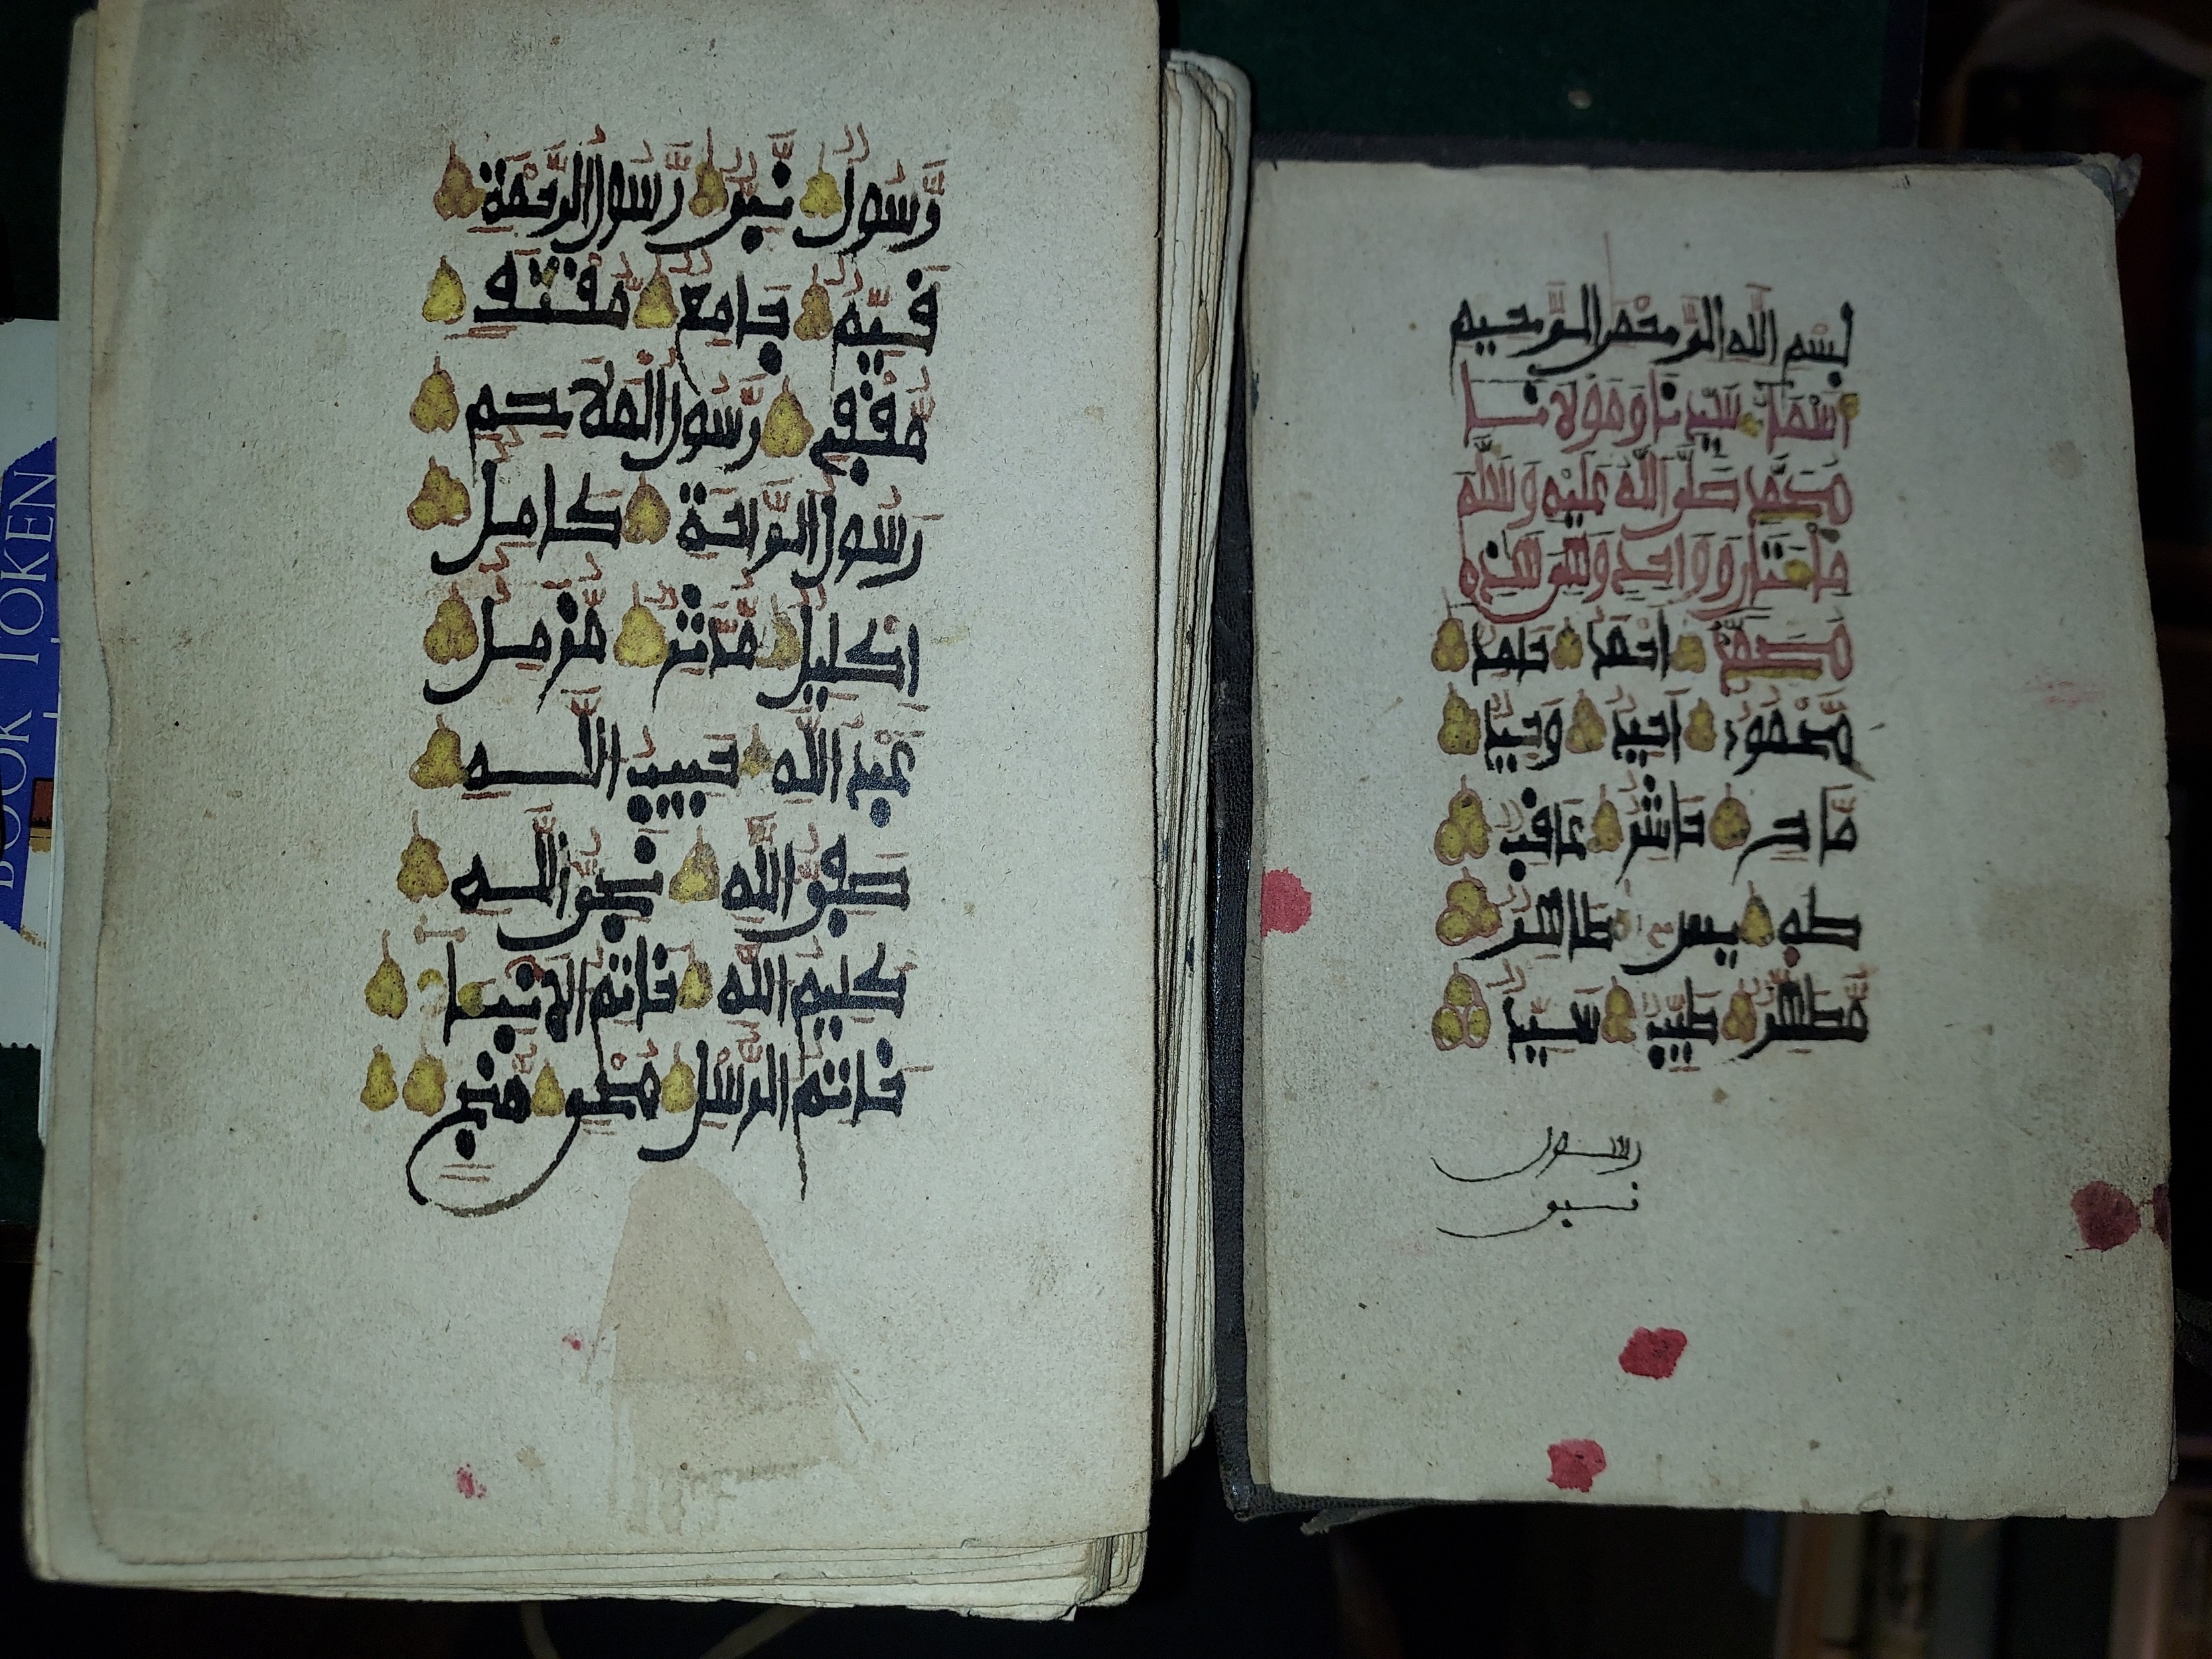 بسم الله الرحمن الرحيم
أسماء سيدنا ومولانا
محمد صلى الله عليه وسلم
مائتان وواحد وهي هذه
محمد أحمد حامد
محمود أحيد وحيد
ماح حاشر عاقب
طه يس طاهر
مطهر طيب سيد
رسول
نبي
رسول نبي رسول الرحمة
قيم جامع مقتف
مقفي رسول الملاحم
رسول الراحة كامل
إكليل مدثر مزمل
عبد الله حبيب الله
صفي الله نجي الله
كليم الله خاتم الأنبيا
خاتم الرسل محي منج
BOOK TOKEN